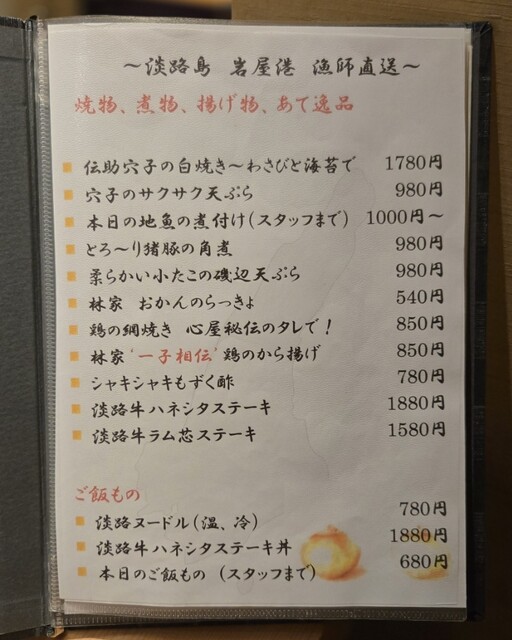 〜淡路島　岩屋港　漁師直送〜
焼物、煮物、揚げ物、あて逸品
伝助穴子の白焼き〜わさびと海苔で 1780円
穴子のサクサク天ぷら 980円
本日の地魚の煮付け(スタッフまで) 1000円〜
とろ〜り猪豚の角煮 980円
柔らかい小たこの磯辺天ぷら 980円
林家　おかんのらっきょ 540円
鶏の網焼き　心屋秘伝のタレで！ 850円
林家‘一子相伝’鶏のから揚げ 850円
シャキシャキもずく酢 780円
淡路牛ハネシタステーキ 1880円
淡路牛ラム芯ステーキ 1580円
ご飯もの
淡路ヌードル(温、冷) 780円
淡路牛ハネシタステーキ丼 1880円
本日のご飯もの　(スタッフまで) 680円